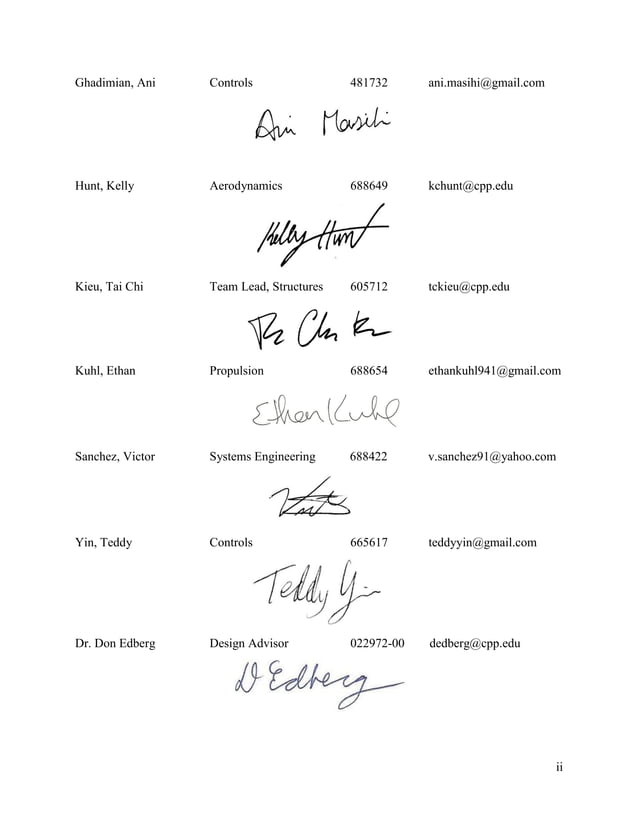 Ghadimian, Ani Controls 481732 ani.masihi@gmail.com
Ani Masihi
Hunt, Kelly Aerodynamics 688649 kchunt@cpp.edu
Kelly Hunt
Kieu, Tai Chi Team Lead, Structures 605712 tckieu@cpp.edu
Kuhl, Ethan Propulsion 688654 ethankuhl941@gmail.com
Ethan Kuhl
Sanchez, Victor Systems Engineering 688422 v.sanchez91@yahoo.com
Yin, Teddy Controls 665617 teddyyin@gmail.com
Teddy Yin
Dr. Don Edberg Design Advisor 022972-00 dedberg@cpp.edu
D Edberg
ii